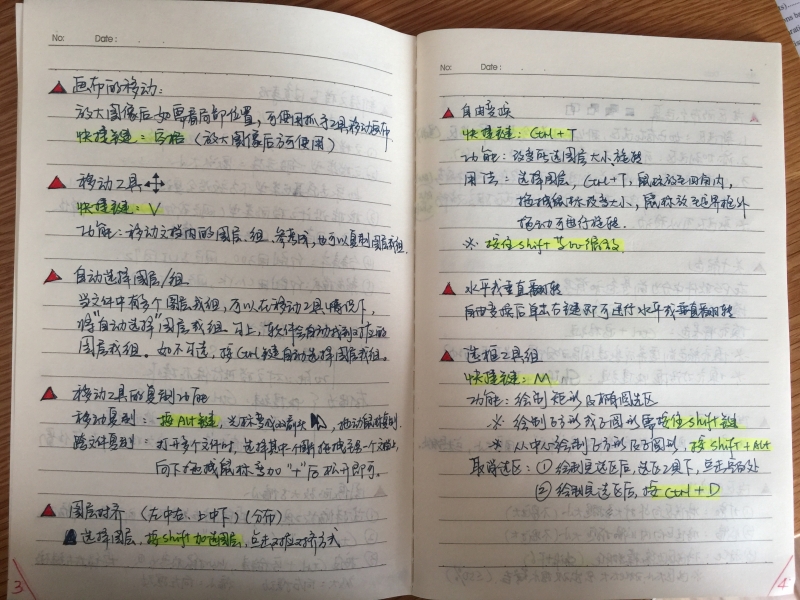 No: Date:
画布的移动:
放大图像后,如需看局部位置,可使用抓手工具移动画布
快捷键:空格(放大图像后方可使用)
移动工具
快捷键:V
功能:移动文档内的图层、组、参考线,也可以复制图层或组.
自动选择图层/组
当文件中有多个图层或组,可以在移动工具情况下,
将"自动选择"图层或组勾上,软件会自动找到对应的
图层或组。如不勾选,按Ctrl键自动选择图层或组。
移动工具的复制功能
移动复制:按Alt键,光标变成双箭头,拖动鼠标复制.
跨文件复制:打开多个文件时,选择其中一个图层拖拽至另一个文档上,
向下拖拽鼠标变加"+"后松开即可。
图层对齐 (左中右、上中下)(分布)
选择图层,按shift加选图层,点击对应对齐方式
3
No: Date:
自由变换
快捷键:Ctrl+T
功能:改变所选图层大小,旋转
用法:选择图层,Ctrl+T,鼠标放至四角内,
拖拽鼠标改变大小,鼠标放至定界框外
拖动可进行旋转.
※ 按住shift等比缩放.
水平或垂直翻转
自由变换后单击右键即可进行水平或垂直翻转
选框工具组
快捷键:M
功能:绘制矩形及椭圆选区
※ 绘制正方形或正圆形需按住shift键
※ 从中心绘制正方形及正圆形,按shift+Alt
取消选区:① 绘制且选区后,选区工具下,点击空白处
② 绘制且选区后,按Ctrl+D
4